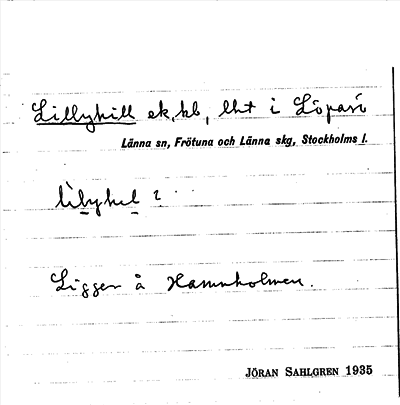 Lillykill ek, kb, lht i Löparö
Länna sn, Frötuna och Länna skg, Stockholms l.
Ligger å Hamnholmen.
JÖRAN SAHLGREN 1935